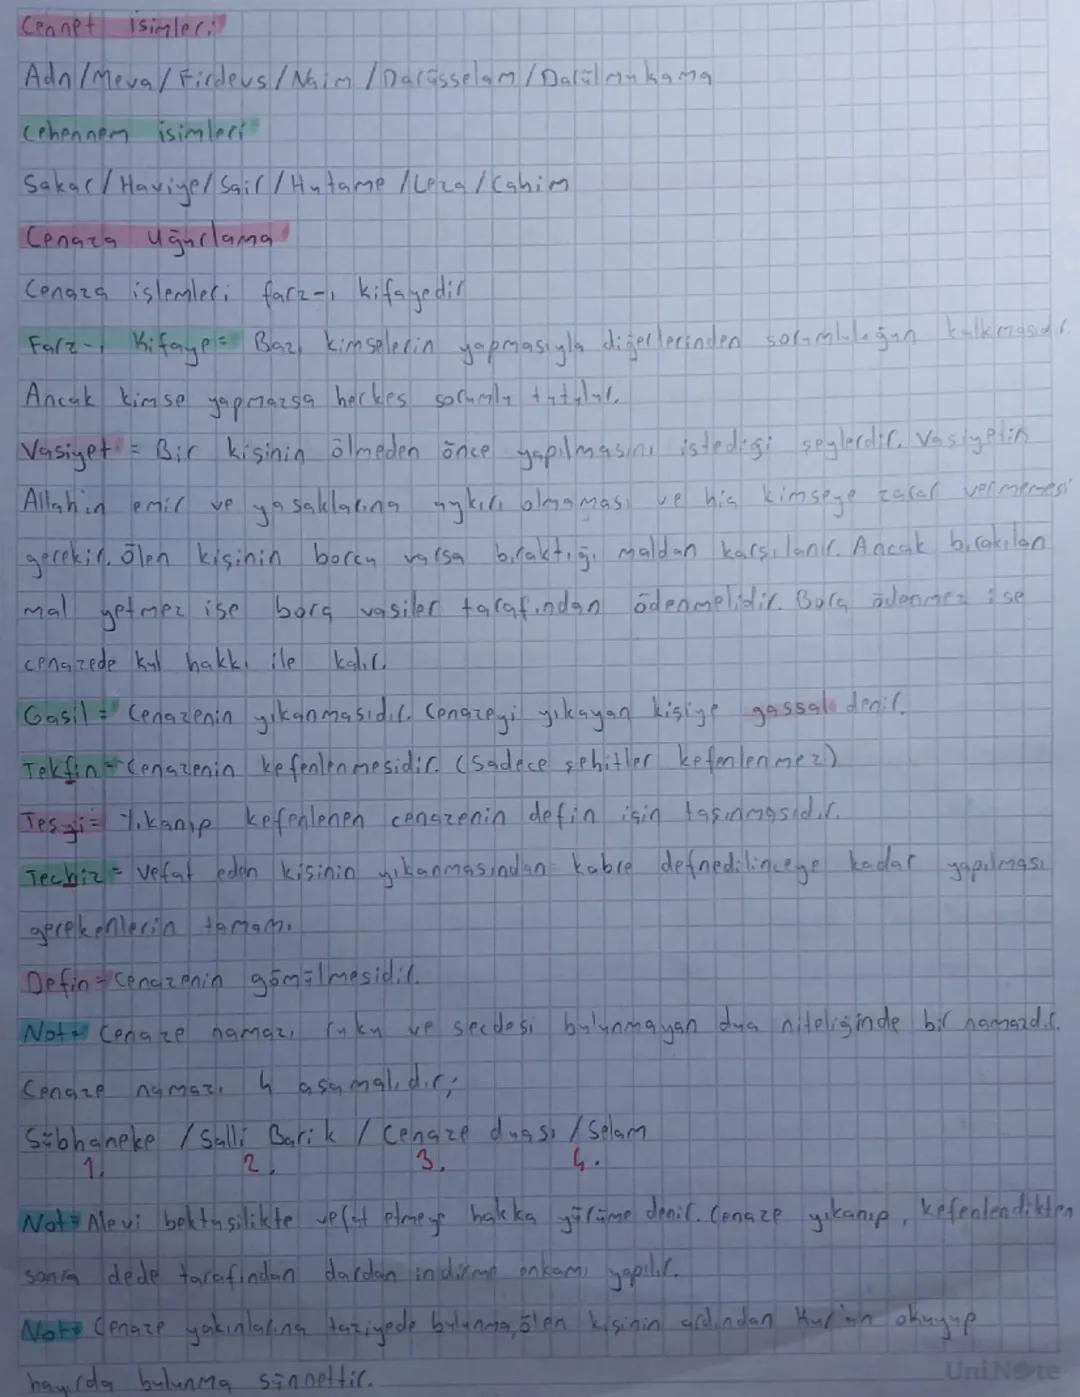 Cennet isimleri
Adn/Meva/Firdevs/Naim/Darüsselam/Darülmukama
Cehennem isimleri
Sakar/Haviye/Sair/Hutame/Leza/Cahim
Cenaza Uğurlama
Cenaza işlemleri farz-ı kifayedir
Farz-ı Kifaye = Bazı kimselerin yapmasıyla diğerlerinden sorumluluğun kalkmasıdır.
Ancak kimse yapmazsa herkes sorumlu tutulur.
Vasiyet = Bir kişinin ölmeden önce yapılmasını istediği şeylerdir. Vasiyetin
Allahın emir ve yasaklarına aykırı olmaması ve hiç kimseye zarar vermemesi
gerekir. Ölen kişinin borcu varsa bıraktığı maldan karşılanır. Ancak bırakılan
mal yetmez ise borç vasiler tarafından ödenmelidir. Borç ödenmez ise
cenazede kul hakkı ile kalır.
Gasil = Cenazenin yıkanmasıdır. Cenazeyi yıkayan kişiye gassal denir.
Tekfin = Cenazenin kefenlenmesidir. (Sadece şehitler kefenlenmez)
Teşyi = Yıkanıp kefenlenen cenazenin defin için taşınmasıdır.
Techiz = Vefat eden kişinin yıkanmasından kabre defnedilinceye kadar yapılması
gerekenlerin tamamı
Defin = Cenazenin gömülmesidir.
Not = Cenaze namazı ruku ve secdesi bulunmayan dua niteliğinde bir namazdır.
Cenaze namazı 4 aşamalıdır;
Sübhaneke / Salli Barik / Cenaze duası / Selam
1. 2. 3. 4.
Not = Alevi bektaşilikte vefat etmeye hakka yürüme denir. Cenaze yıkanıp, kefenlendikten
sonra dede tarafından dardan indirme erkamı yapılır.
Not = Cenaze yakınlarına taziyede bulunma, ölen kişinin ardından Kur'an okuyup
hayırda bulunma sünnettir.
UniNote